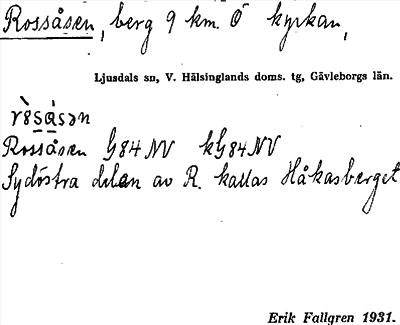 Rossåsen, berg 9 km. Ö kyrkan,
Ljusdals sn, V. Hälsinglands doms. tg, Gävleborgs län.
Rossåsen G84 NV kG84NV
Sydöstra delen av R. kallas Håkasberget
Erik Fallgren 1931.